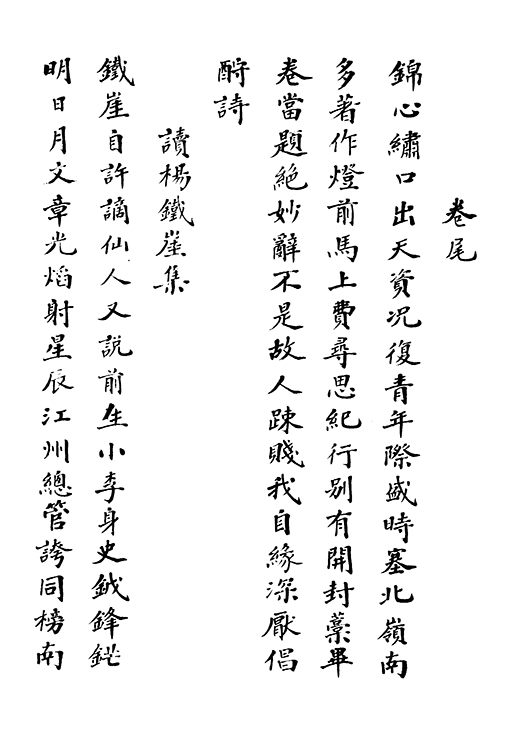 卷尾
錦心繡口出天資况復青年際盛時塞北嶺南
多著作燈前馬上費尋思紀行别有開封藁畢
卷當題絶妙辭不是故人疎賤我自緣深厭倡
酧詩
讀楊鐵崖集
鐵崖自許謫仙人又説前生小李身史鉞鋒鋩
明日月文章光熖射星辰江州總管誇同榜南